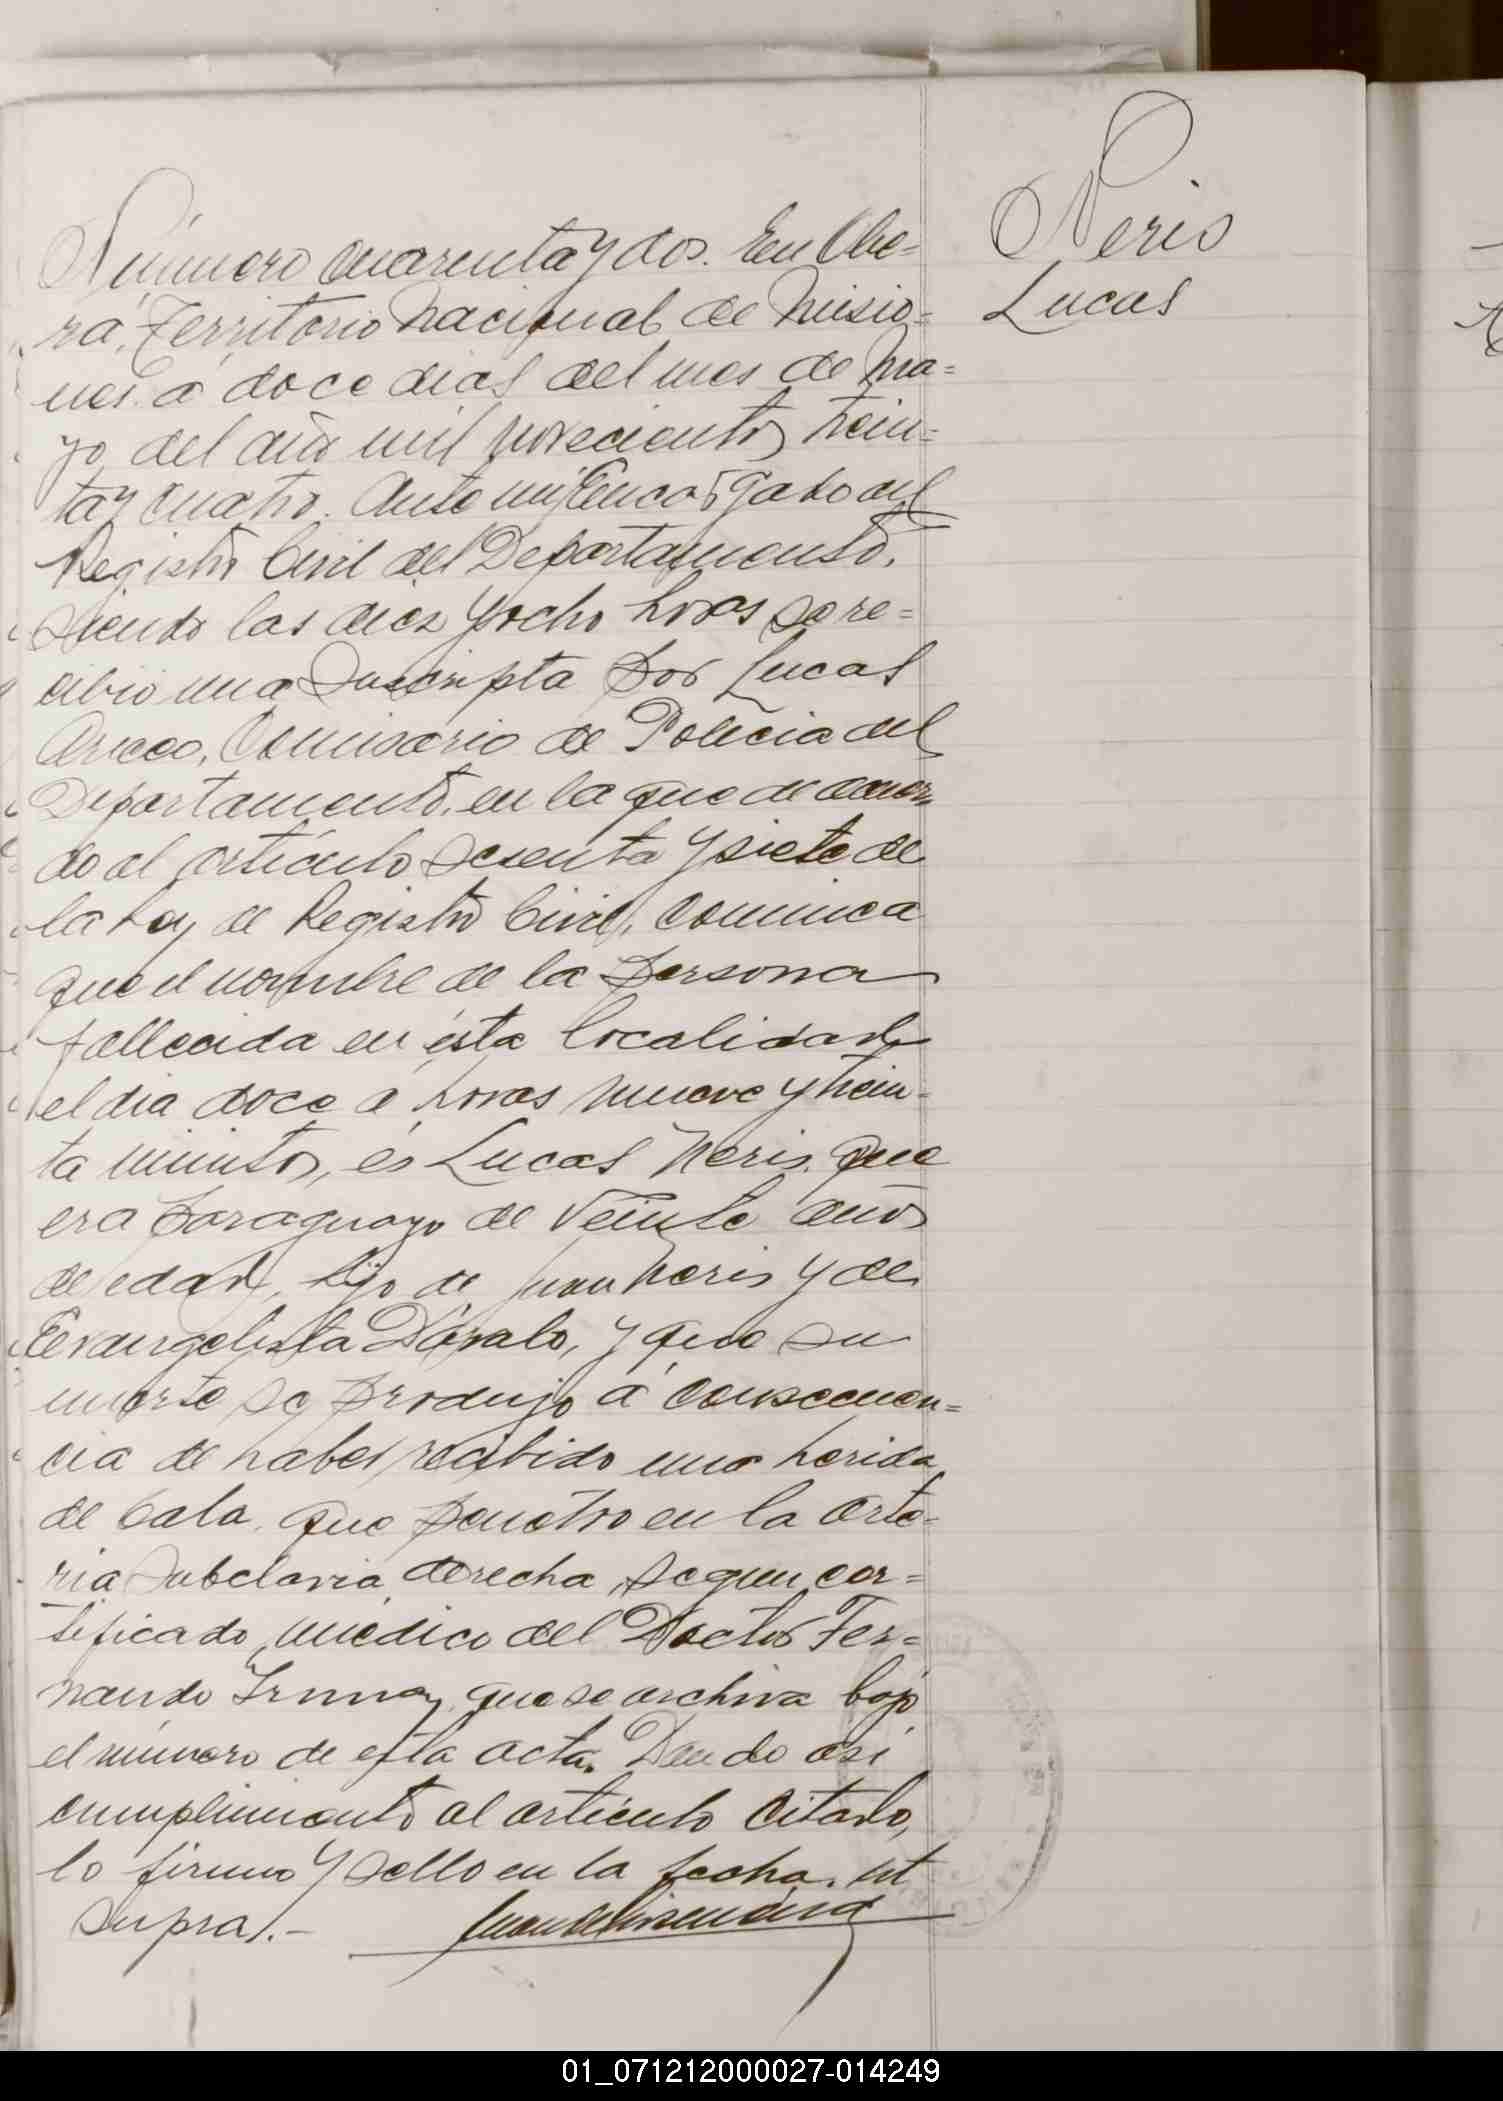 Neris
Lucas
Número cuarenta y dos. En Obe=
rá, Territorio Nacional de Misio=
nes a doce dias del mes de Ma=
yo del año mil novecientos trein=
ta y cuatro. Ante mi Encargado del
Registro Civil del Departamento,
siendo las diez y ocho horas se re=
cibió una suscripta por Lucas
Comisario de Policia del
Departamento, en la que de acuer=
do al artículo sesenta y siete de
la Ley de Registro Civil, comunica
que el nombre de la persona
fallecida en ésta localidad
el dia doce a horas nueve y trein=
ta minutos, es Lucas Neris, que
era Paraguayo de veinte años
de edad, hijo de Juan Neris y de
Evangelista Dávalo, y que su
muerte se produjo a consecuen=
cia de haber recibido una herida
de bala, que penetro en la arte=
ria subclavia derecha, segun cer=
tificado médico del Doctor Fer=
nando que se archiva bajo
el número de esta acta. Dando asi
cumplimiento al artículo citado,
lo firmo y sello en la fecha, ut
supra.-
01_071212000027-014249